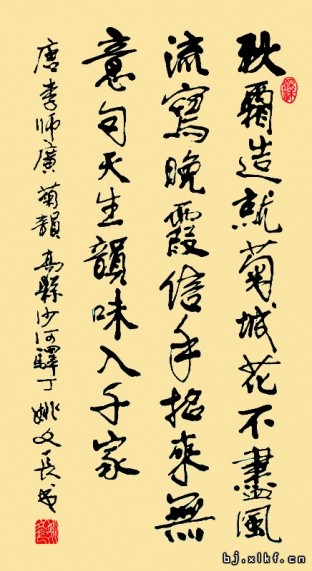 秋霜造就菊城花不盡風
流寫晚霞信手拈來無
意句天生韻味入千家
唐李師廣菊韻 高縣沙河驛丁姚文長書
bj.xlkf.cn